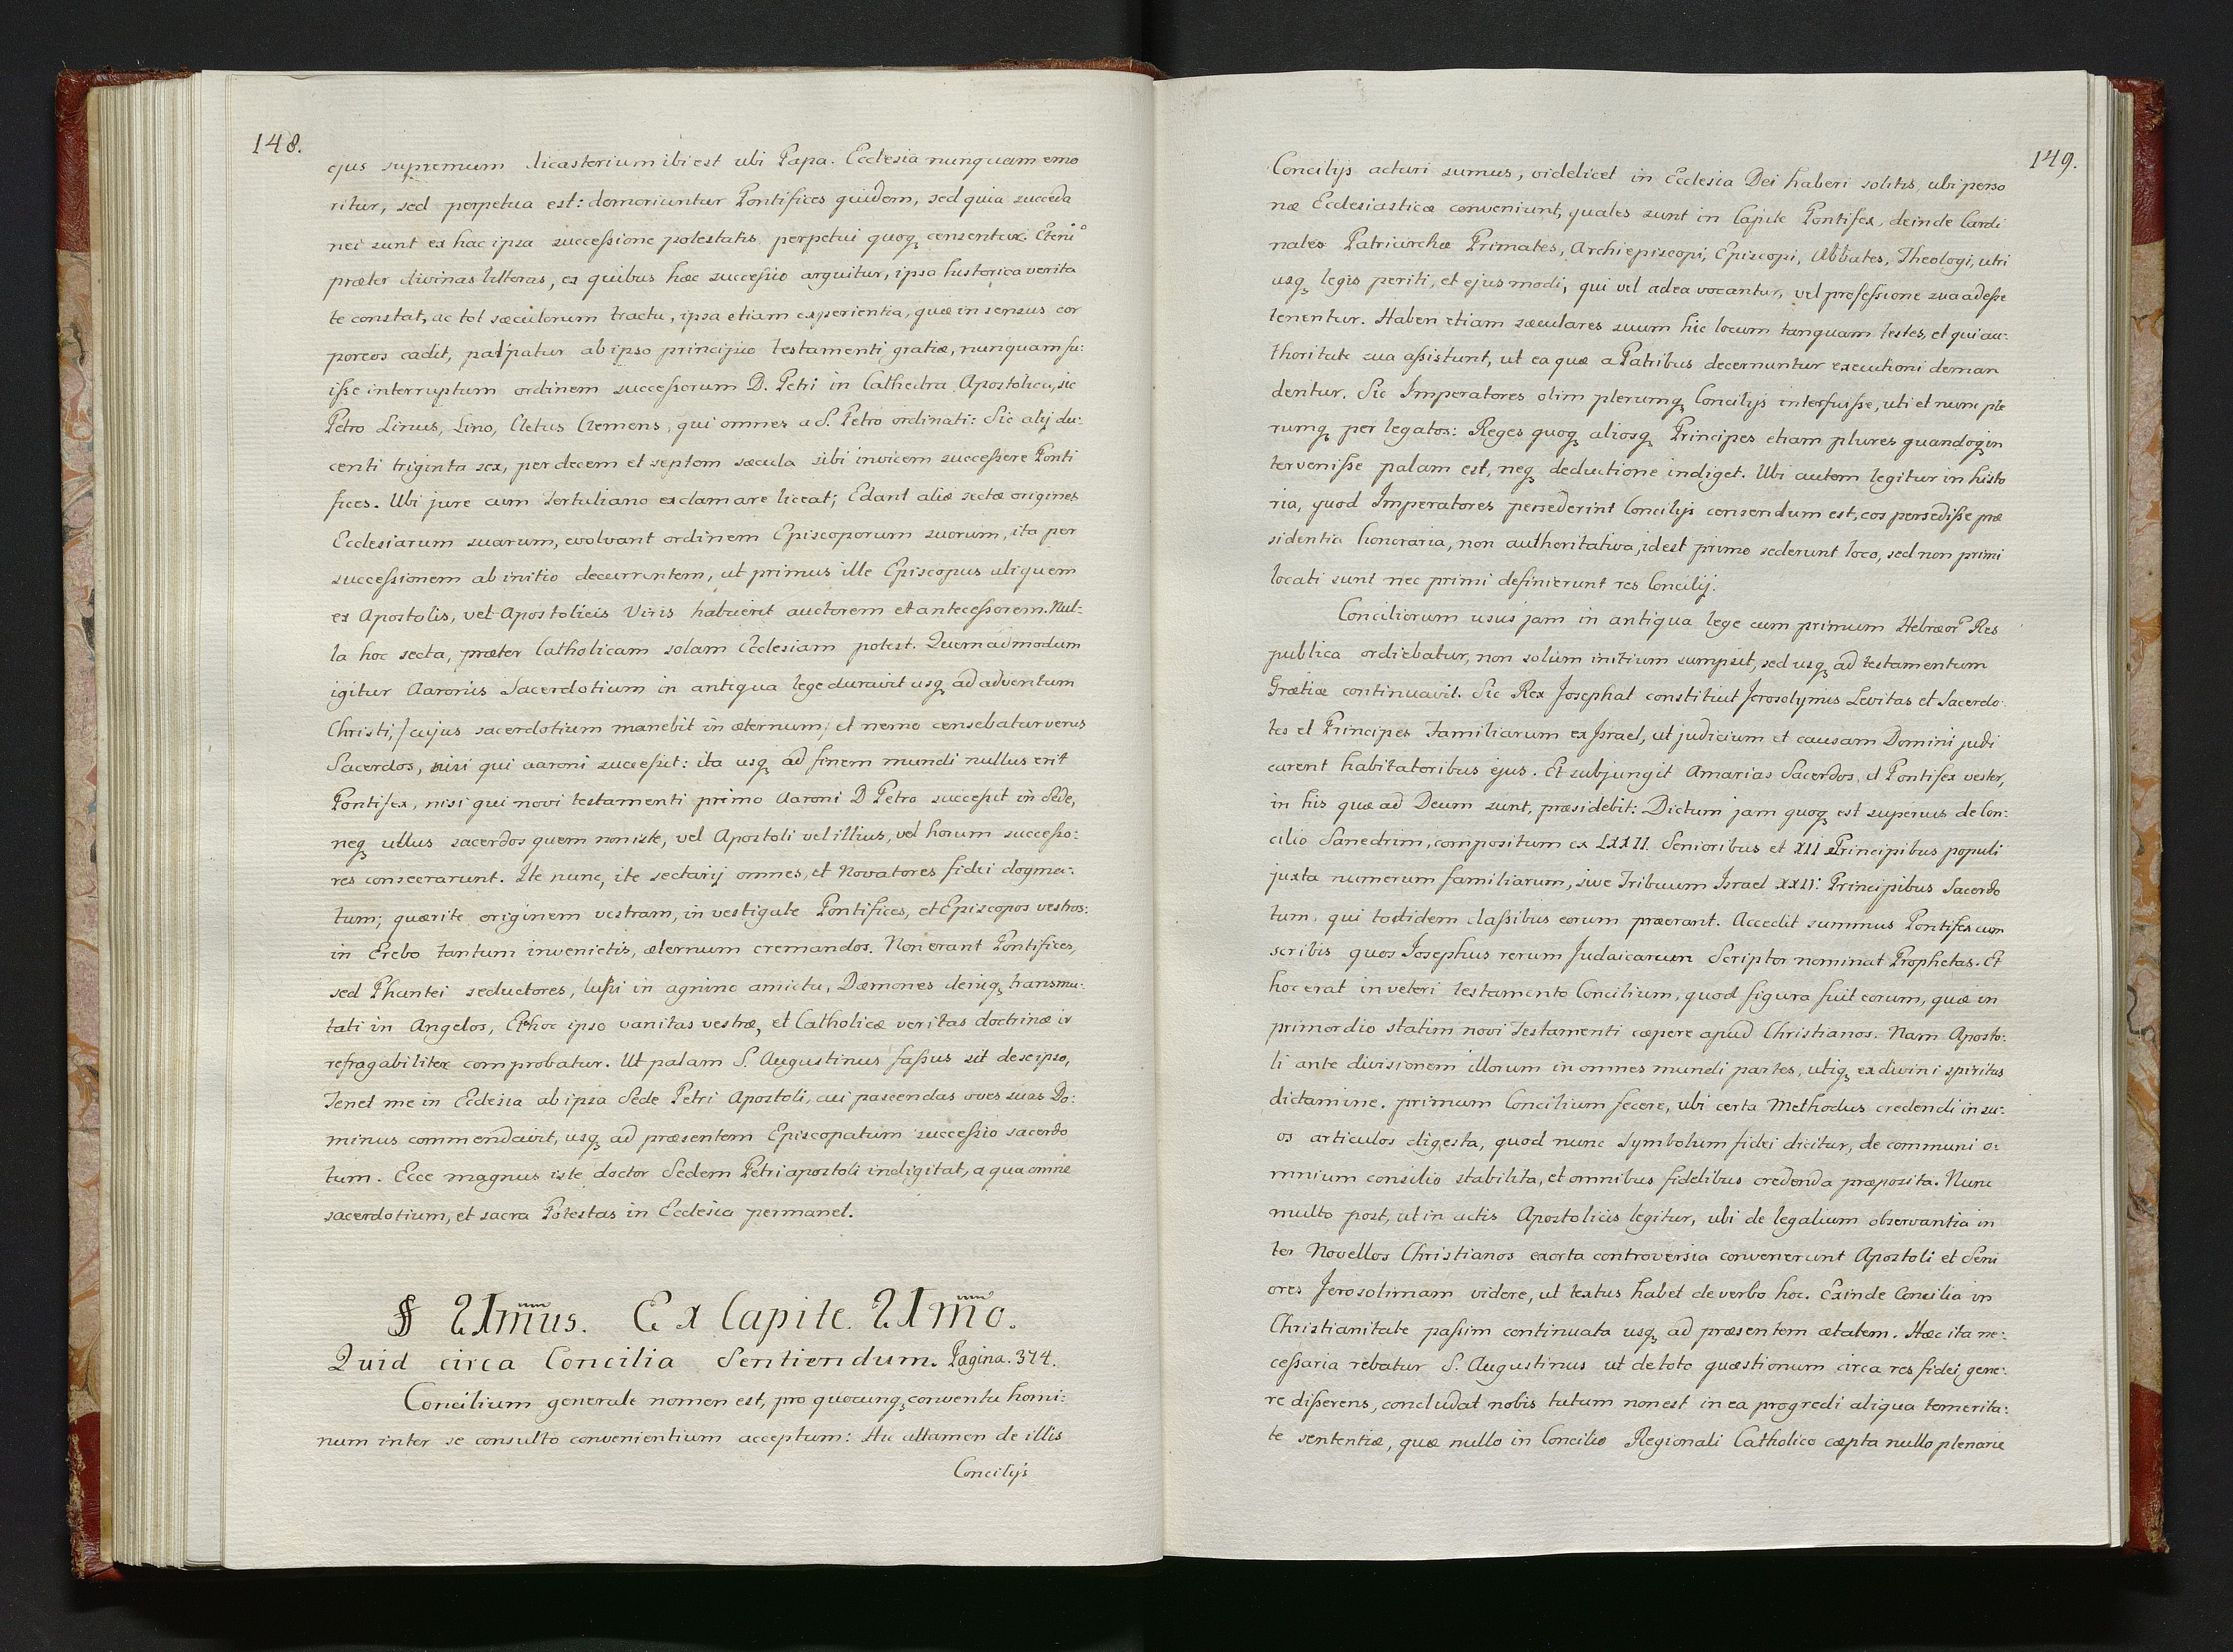 148.
ejus supremum dicasterium ibi est ubi Papa. Ecclesia nunquam emo
ritur, sed perpetua est: demoriuntur Pontifices quidem, sed quia succeda
nei sunt ex hac ipsa successione potestatis perpetui quoq censentur.
præter divinas litteras, ex quibus hæc successio arguitur, ipsa historica verita
te constat, ac tot sæculorum tractu, ipsa etiam experientia, quæ in sensus cor
poreos cadit, palpatur ab ipso principio testamenti gratiæ, nunquam fu:
isse interruptum ordinem successorum D. Petri in Cathedra Apostolica, sic
Petro Linus, Lino, Cletus Clemens, qui omnes a S. Petro ordinati: Sic alij du:
centi triginta sex, per decem et septem sæcula sibi invicem successere Ponti
fices. Ubi jure cum Tertuliano exclamare liceat; Edant aliæ sectæ origines
Ecclesiarum suarum, evolvant ordinem Episcoporum suorum, ita per
successionem ab initio decurrentem, ut primus ille Episcopus aliquem
ex Apostolis, vel Apostolicis Viris habuerit auctorem et antecessorem. Nul:
la hoc secta, præter Catholicam solam Ecclesiam potest. Quemadmodum
igitur Aaronis Sacerdotium in antiqua lege duravit usq ad adventum
Christi, / cujus sacerdotium manebit in æternum, et nemo censebatur verus
Sacerdos, nisi qui aaroni successit: ita usq ad finem mundi nullus erit
Pontifex, nisi qui novi testamenti primo Aaroni D Petro successit in Sede,
neq ullus sacerdos quem non iste, vel Apostoli vel illius, vel horum successo:
res consecrarunt. Ite nunc, ite sectarij omnes, et Novatores fidei dogma:
tum; quærite originem vestram, in vestigate Pontifices, et Episcopos vestros:
in Erebo tantum invenietis, æternum cremandos. Non erant Pontifices,
sed Phantei seductores, lupi in agnino amictu, Dæmones deniq transmu:
tati in Angelos, Et hoc ipso vanitas vestræ, et Catholicæ veritas doctrinæ ir
refragabiliter comprobatur. Ut palam S. Augustinus fassus sit de se ipso,
Tenet me in Ecclesia ab ipsa Sede Petri Apostoli, cui pascendas oves suas Do:
minus commendavit, usq ad præsentem Episcopatum successio sacerdo
tum. Ecce magnus iste doctor Sedem Petri apostoli indigitat, a qua omne
sacerdotium, et sacra Potestas in Ecclesia permanet.
§ Ex Capite
Quid circa Concilia Sentiendum. Pagina. 374.
Concilium generale nomen est, pro quocunq conventu homi:
num inter se consulto convenientium acceptum: Hic attamen de illis
Concilijs
149.
Concilijs acturi sumus, videlicet in Ecclesia Dei haberi solitis, ubi perso
næ Ecclesiasticæ conveniunt, quales sunt in Capite Pontifex, deinde Cardi
nales Patriarchæ Primates, Archiepiscopi, Episcopi, Abbates, Theologi, utri
usq legis periti, et ejusmodi, qui vel ad ea vocantur, vel professione sua adesse
tenentur. Haben etiam sæculares suum hic locum tanquam testes, et qui au:
thoritate sua assistunt, ut ea quæ a Patribus decernuntur executioni deman
dentur. Sic Imperatores olim plerumq Concilijs interfuisse, uti et nunc ple
rumq per legatos: Reges quoq aliosq Principes etiam plures quandoq in
tervenisse palam est, neq deductione indiget. Ubi autem legitur in histo
ria, quod Imperatores persederint Concilijs censendum est, eos persedisse præ
sidentia honoraria, non authoritativa, id est primo sederunt loco, sed non primi
locati sunt nec primi definierunt res Concilij.
Conciliorum usus jam in antiqua lege cum primum Hebræor Res
publica ordiebatur, non solùm initium sumpsit, sed usq ad testamentum
Grætiæ continuavit. Sic Rex Josephat constitiut Jerosolymis Levitas et Sacerdo:
tes et Principes Familiarum ex Israel, ut judicium et causam Domini judi
carent habitatoribus ejus. Et subjungit Amarias Sacerdos, et Pontifex vester,
in his quæ ad Deum sunt, præsidebit: Dictum jam quoq est superius de Con:
cilio Sanedrim, compositum ex LXXII. Senioribus et XII Principibus populi
juxta numerum familiarum, sive Tribuum Israel XXII: Principibus Sacerdo
tum, qui totidem classibus eorum præerant. Accedit summus Pontifex cum
scribis quos Josephus rerum Judaicarum Scriptor nominat Prophetas. Et
hoc erat in veteri testamento Concilium, quod figura fuit eorum, quæ in
primordio statim novi Testamenti cæpere apud Christianos. Nam Aposto:
li ante divisionem illorum in omnes mundi partes, utiq ex divini spiritus
dictamine. primum Concilium fecere, ubi certa Methodus credendi in su:
os articulos digesta, quod nunc Symbolum fidei dicitur, de communi o:
mnium consilio stabilita, et omnibus fidelibus credenda præposita. Nunc
multo post, ut in actis Apostolicis legitur, ubi de legalium observantia in
ter Novellos Christianos exorta controversia convenerunt Apostoli et Seni
ores Jerosolimam videre, ut textus habet de verbo hoc. Exinde Concilia in
Christianitate passim continuata usq ad præsentem ætatem. Hæc ita ne:
cessaria rebatur S. Augustinus ut de toto quæstionum circa res fidei gene:
re disserens, concludat nobis tutum non est in ea progredi aliqua temerita:
te sententiæ, quæ nullo in Concilio Regionali Catholico cæpta nullo plenarie